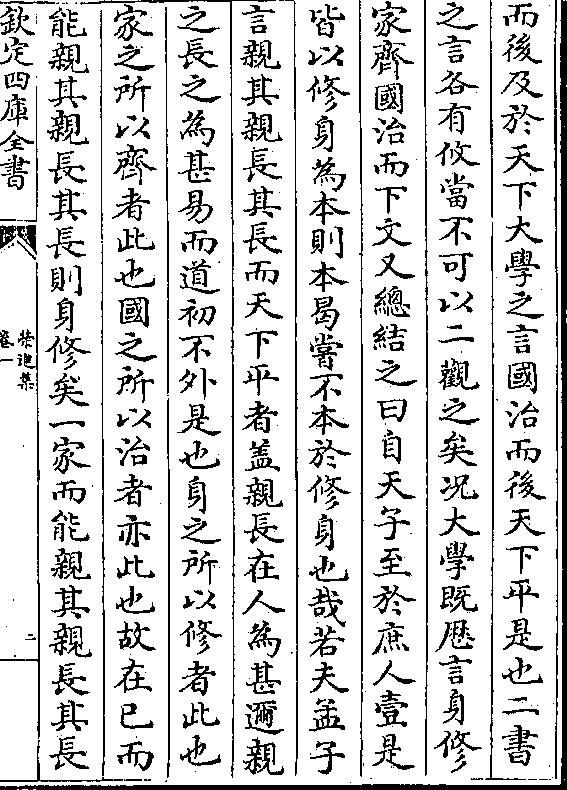 而後及於天下大學之言國治而後天下平是也二書
之言各有攸當不可以二觀之矣况大學既歴言身修
家齊國治而下文又總結之曰自天子至於庶人壹是
皆以修身為本則本曷嘗不本於修身也哉若夫孟子
言親其親長其長而天下平者盖親長在人為甚邇親
之長之為甚易而道初不外是也身之所以修者此也
家之所以齊者此也國之所以治者亦此也故在已而
能親其親長其長則身修矣一家而能親其親長其長
欽定四庫全書
卷一
二